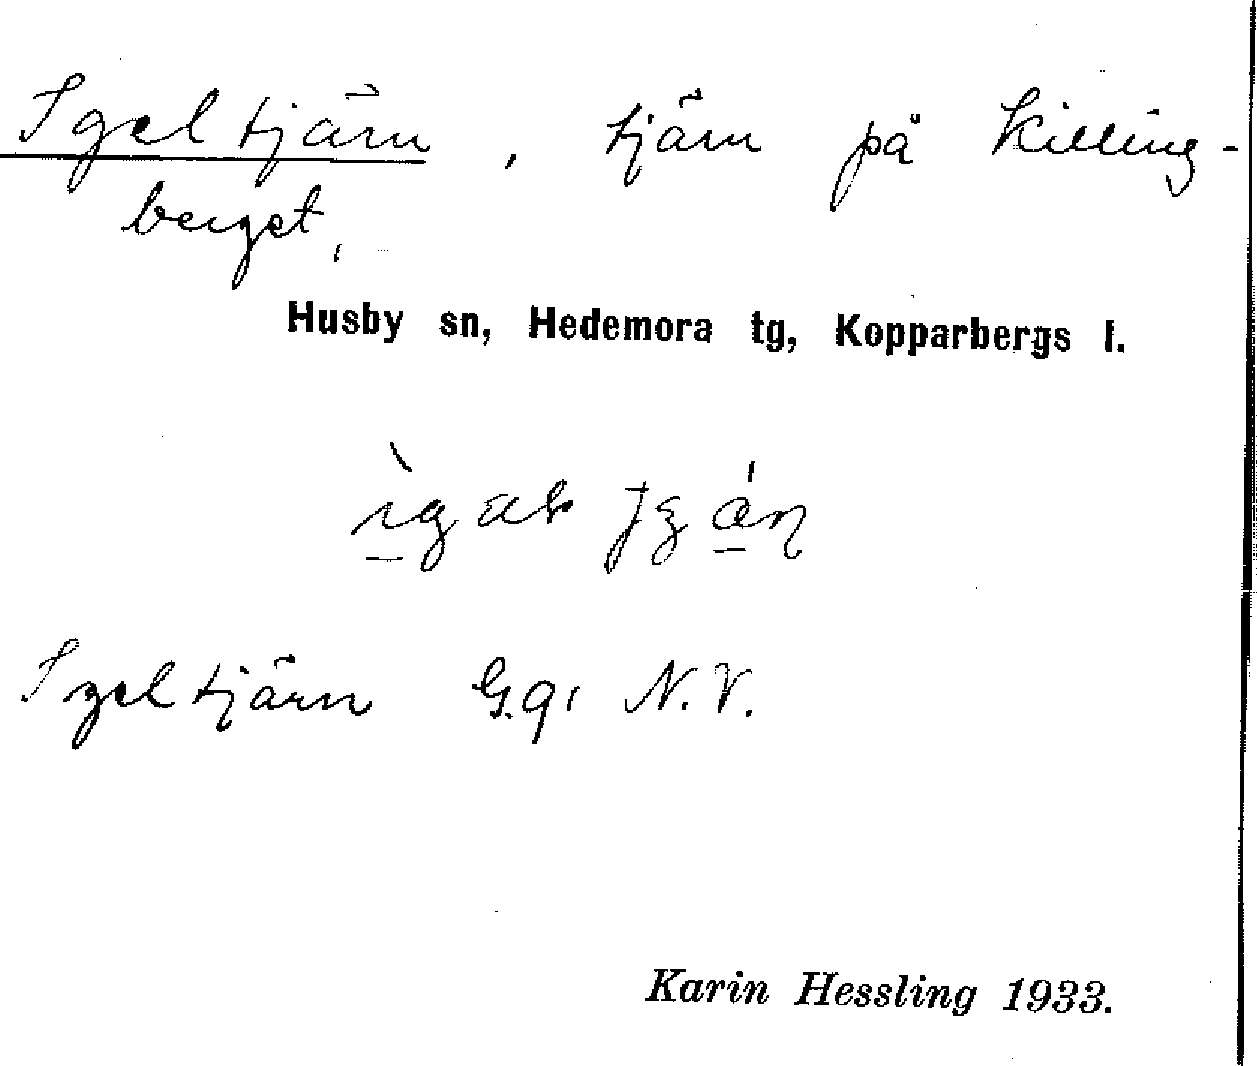 Igeltjärn, tjärn på Killing-
berget,
Husby sn, Hedemora tg, Kopparbergs l.
Igeltjärn G.q. N.V.
Karin Hessling 1933.